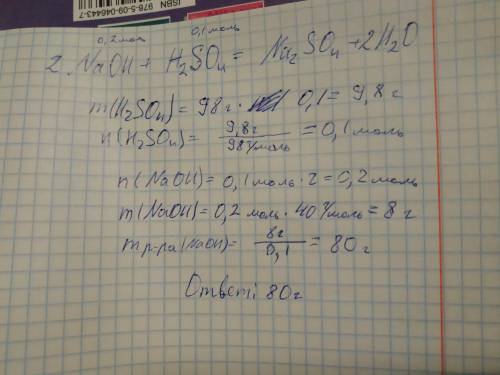 ISBN 978-5-09-046443-7
0,2моль 0,1моль
2 NaOH + H₂SO₄ = Na₂SO₄ + 2H₂O
m(H₂SO₄) = 98г · 0,1 = 9,8г
n(H₂SO₄) = 9,8г / 98г/моль = 0,1моль
n(NaOH) = 0,1моль · 2 = 0,2моль
m(NaOH) = 0,2 моль · 40г/моль = 8г
m р-ра(NaOH) = 8г / 0,1 = 80г
Ответ: 80г